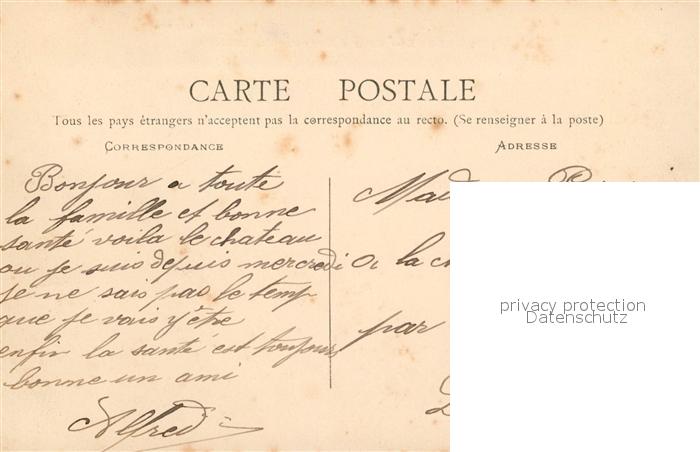 CARTE POSTALE
Tous les pays étrangers n'acceptent pas la correspondance au recto. (Se renseigner à la poste)
CORRESPONDANCE
ADRESSE
Bonjour a toute
la famille et bonne
santé voila le chateau
ou je suis depuis mercredi
je ne sais pas le temp
que je vais y être
enfin la santé est toujours
bonne un ami
Alfred
a la
par
privacy protection
Datenschutz